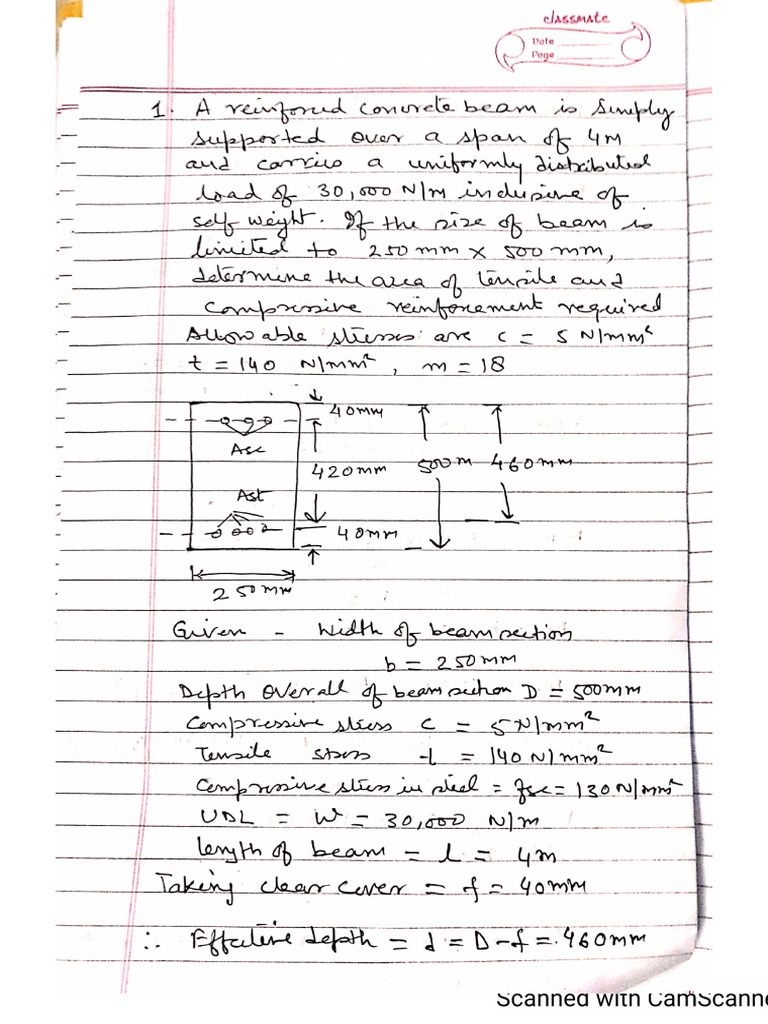 classmate
Date
Page
1. A reinforced concrete beam is simply
supported over a span of 4m
and carries a uniformly distributed
load of 30,000 N/m inclusive of
self weight. If the size of beam is
limited to 250 mm × 500 mm,
determine the area of tensile and
compressive reinforcement required
Allowable stresses are c = 5 N/mm²
t = 140 N/mm², m = 18
40mm
Asc
420mm 500m 460mm
Ast
40mm
250mm
Given - Width of beam section
b = 250mm
Depth Overall of beam section D = 500mm
Compressive stress c = 5N/mm²
Tensile stress t = 140 N/mm²
Compressive stress in steel = fsc = 130N/mm²
UDL = W = 30,000 N/m
length of beam = l = 4m
Taking clear cover = f = 40mm
∴ Effective depth = d = D-f = 460mm
Scanned with CamScanne